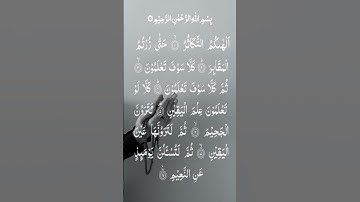 بِسْمِ اللهِ الرَّحْمٰنِ الرَّحِيْمِ
اَلْهٰىكُمُ التَّكَاثُرُ ۙ حَتّٰى زُرْتُمُ
الْمَقَابِرَ ؕ كَلَّا سَوْفَ تَعْلَمُوْنَ ۙ
ثُمَّ كَلَّا سَوْفَ تَعْلَمُوْنَ ؕ كَلَّا لَوْ
تَعْلَمُوْنَ عِلْمَ الْيَقِيْنِ ؕ لَتَرَوُنَّ
الْجَحِيْمَ ۙ ثُمَّ لَتَرَوُنَّهَا عَيْنَ
الْيَقِيْنِ ۙ ثُمَّ لَتُسْـَٔلُنَّ يَوْمَىِٕذٍ
عَنِ النَّعِيْمِ